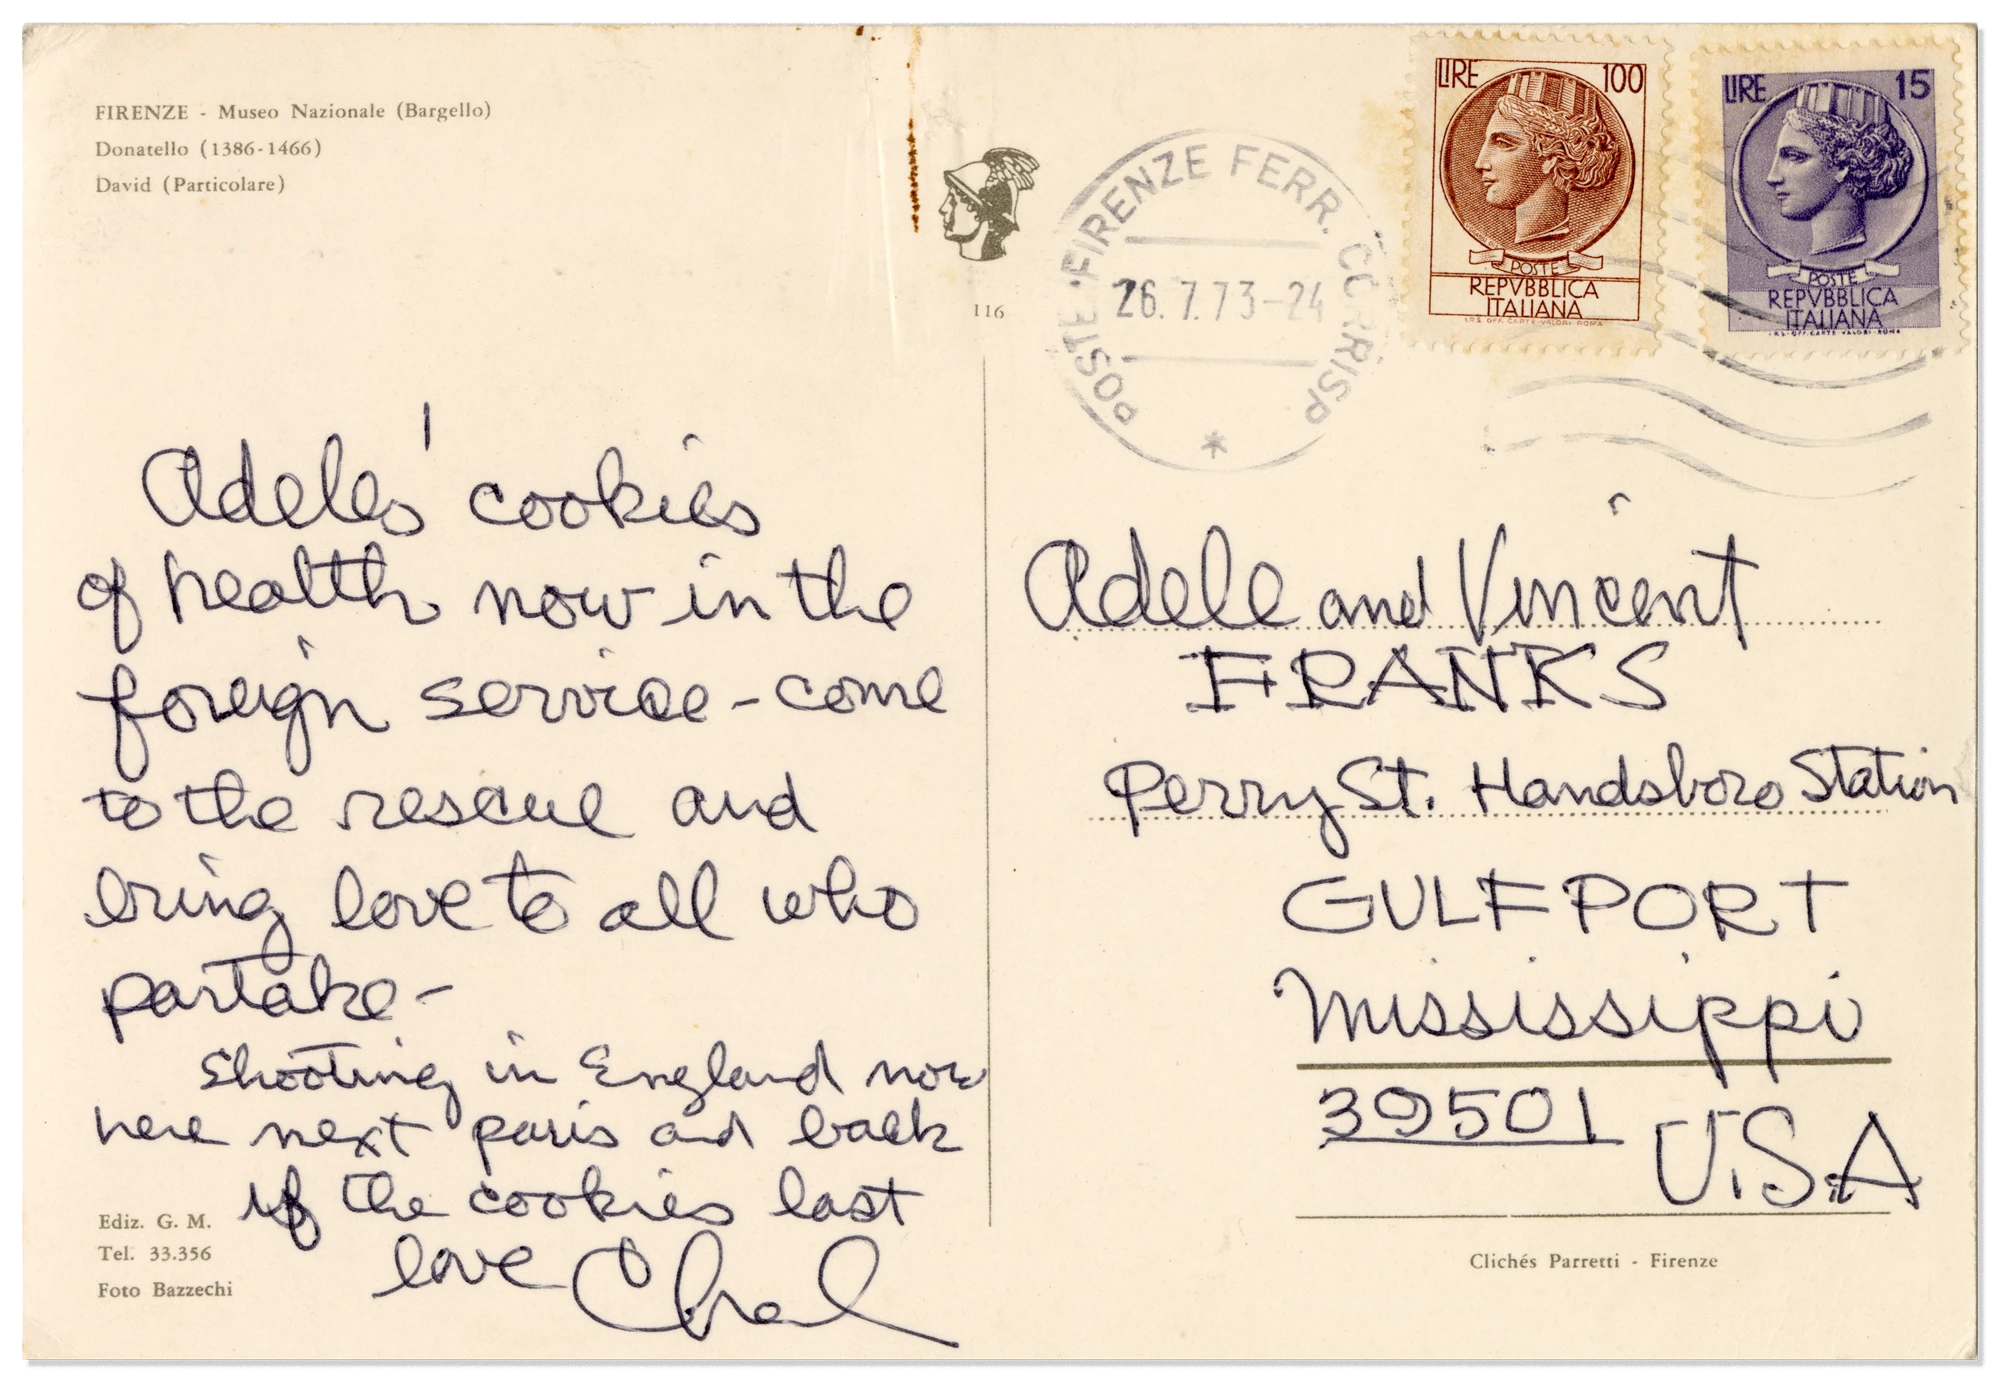 FIRENZE - Museo Nazionale (Bargello)
Donatello (1386-1466)
David (Particolare)
116
POSTE·FIRENZE FERR. CORRISP
26.7.73-24
*
LIRE 100
POSTE
REPVBBLICA
ITALIANA
I.P.S. OFF. CARTE-VALORI-ROMA
LIRE 15
POSTE
REPVBBLICA
ITALIANA
I.P.S.-OFF. CARTE-VALORI-ROMA
Adeles' cookies
of health now in the
foreign service - come
to the rescue and
bring love to all who
partake -
Shooting in England now
here next paris and back
if the cookies last
love
Adele and Vincent
FRANKS
Perry St. Handsboro Station
GULFPORT
Mississippi
39501 U.S.A
Ediz. G. M.
Tel. 33.356
Foto Bazzechi
Clichés Parretti - Firenze